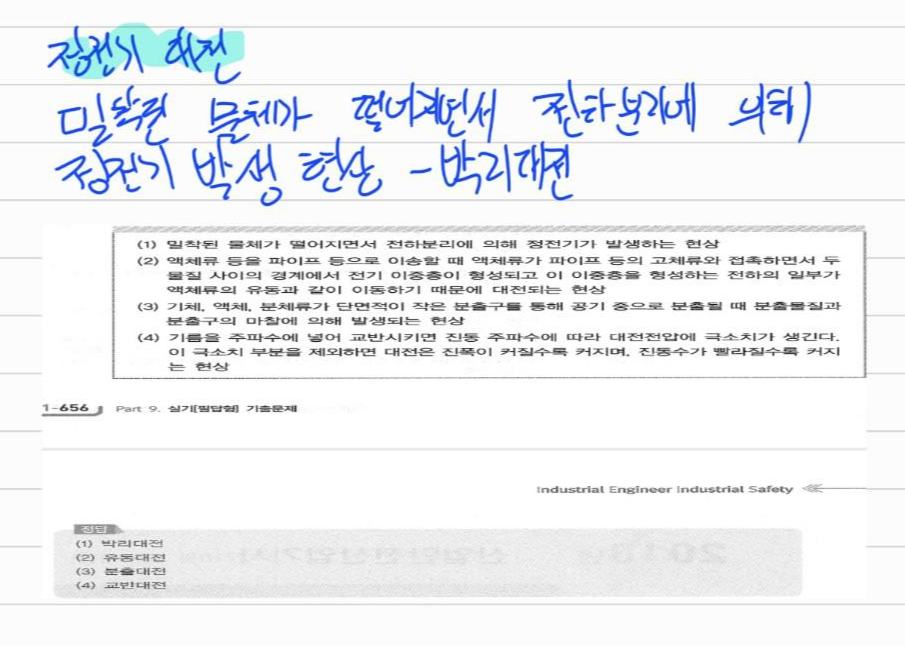 정전기 대전
밀착된 물체가 떨어지면서 전하분리에 의해
정전기 발생 현상 - 박리대전
(1) 밀착된 물체가 떨어지면서 전하분리에 의해 정전기가 발생하는 현상
(2) 액체류 등을 파이프 등으로 이송할 때 액체류가 파이프 등의 고체류와 접촉하면서 두
물질 사이의 경계에서 전기 이중층이 형성되고 이 이중층을 형성하는 전하의 일부가
액체류의 유동과 같이 이동하기 때문에 대전되는 현상
(3) 기체, 액체, 분체류가 단면적이 작은 분출구를 통해 공기 중으로 분출될 때 분출물질과
분출구의 마찰에 의해 발생되는 현상
(4) 기름을 주파수에 넣어 교반시키면 진동 주파수에 따라 대전전압에 극소치가 생긴다.
이 극소치 부분을 제외하면 대전은 진폭이 커질수록 커지며, 진동수가 빨라질수록 커지
는 현상
1-656 Part 9. 실기[필답형] 기출문제
Industrial Engineer Industrial Safety
정답
(1) 박리대전
(2) 유동대전
(3) 분출대전
(4) 교반대전